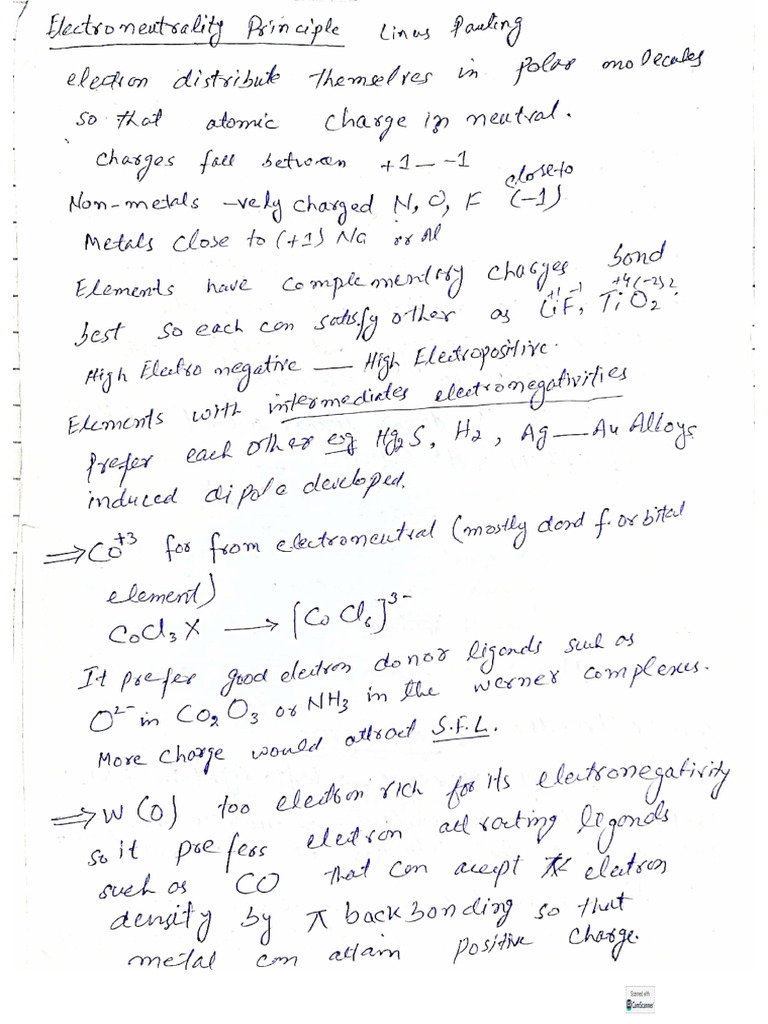 Electroneutrality Principle Linus Pauling
electron distribute themselves in polar molecules
so that atomic charge is neutral.
Charges fall between +1 — -1
Non-metals -vely charged N, O, F close to (-1)
Metals close to (+1) Na or Al
Elements have complementary charges bond
best so each can satisfy other as Li⁺¹F⁻¹, Ti⁺⁴O₂⁽⁻²⁾²
High Electro negative — High Electropositive.
Elements with intermediates electronegativities
Prefer each other eg Hg₂S, H₂, Ag — Au Alloys
induced dipole developed.
⇒ Co⁺³ for from electroneutral (mostly d and f. orbital
element)
CoCl₃ X ⟶ [CoCl₆]³⁻
It prefer good electron donor ligands such as
O²⁻ in Co₂O₃ or NH₃ in the werner complexes.
More charge would attract S.F.L.
⇒ W(0) too electron rich for its electronegativity
so it prefers electron attracting ligands
such as CO that can acept electron
density by π backbonding so that
metal can attain positive charge.
Scanned with
CamScanner